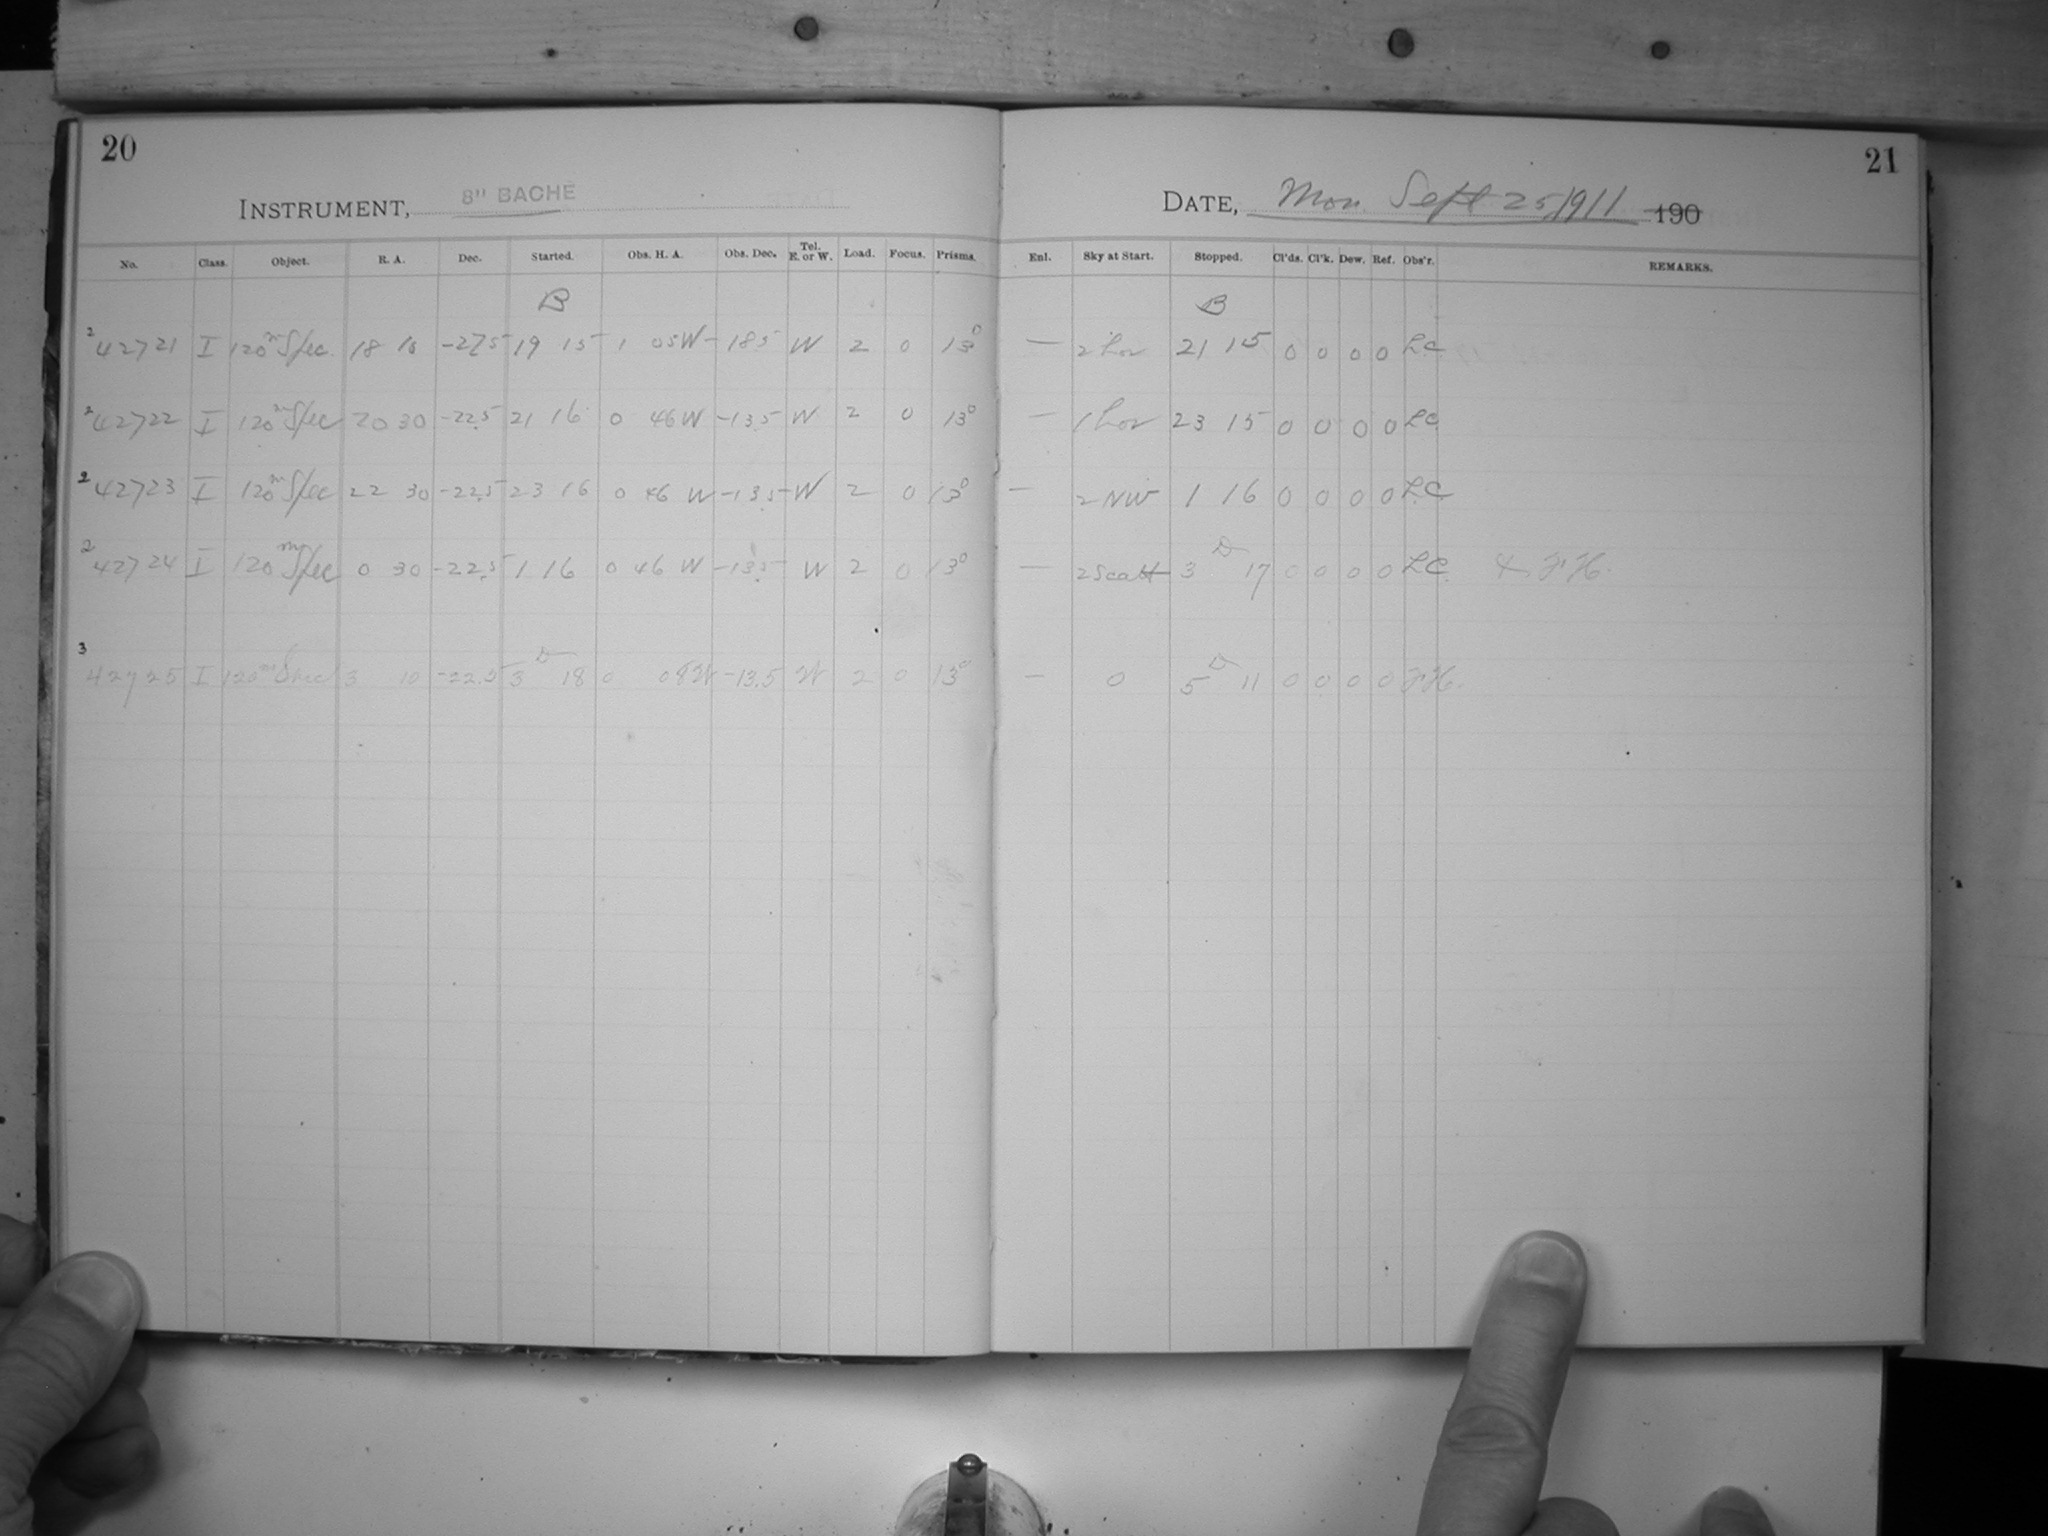 20
21
INSTRUMENT, 8" BACHE
DATE, Mon Sept 25 1911 190
No. Class. Object. R. A. Dec. Started. Obs. H. A. Obs. Dec. Tel. E. or W. Load. Focus. Prisms. Enl. Sky at Start. Stopped. Cl'ds. Cl'k. Dew. Ref. Obs'r. REMARKS.
B B
2 42721 I 120m Spec. 18 10 -27.5 19 15 1 05 W -18.5 W 2 0 13° — 2 hor 21 15 0 0 0 0 L.C.
2 42722 I 120m Spec 20 30 -22.5 21 16 0 46 W -13.5 W 2 0 13° — 1 hor 23 15 0 0 0 0 L.C.
2 42723 I 120m Spec 22 30 -22.5 23 16 0 46 W -13.5 W 2 0 13° — 2 NW 1 16 0 0 0 0 L.C.
2 42724 I 120m Spec 0 30 -22.5 1 16 0 46 W -13.5 W 2 0 13° — 2 Scatt 3 D 17 0 0 0 0 L.C. & F.H.
3 42725 I 120m Spec 3 10 -22.5 3 D 18 0 08 W -13.5 W 2 0 13° — 0 5 D 11 0 0 0 0 F.H.